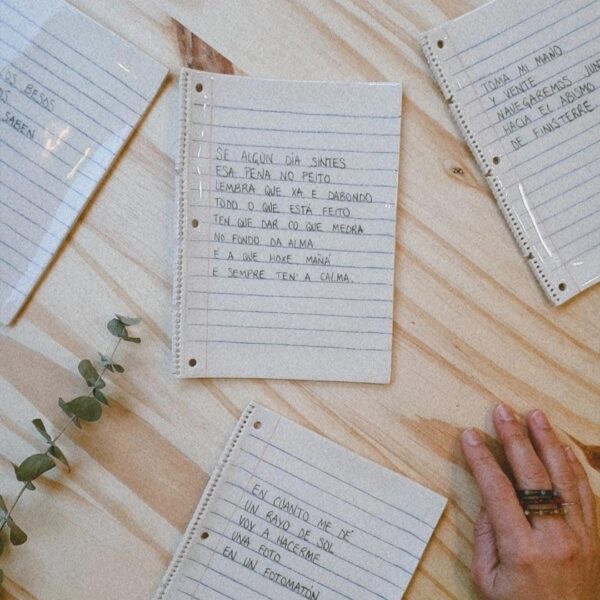 OS BESOS
OS
SABEN
SE ALGÚN DÍA SINTES
ESA PENA NO PEITO
LEMBRA QUE XA E DABONDO
TODO O QUE ESTÁ FEITO
TEN QUE DAR CO QUE MEDRA
NO FONDO DA ALMA
E A QUE HOXE, MAÑÁ
E SEMPRE TEN A CALMA.
TOMA MI MANO
Y VENTE
NAVEGAREMOS JUN
HACIA EL ABISMO
DE FINISTERRE.
EN CUANTO ME DÉ
UN RAYO DE SOL
VOY A HACERME
UNA FOTO
EN UN FOTOMATÓN